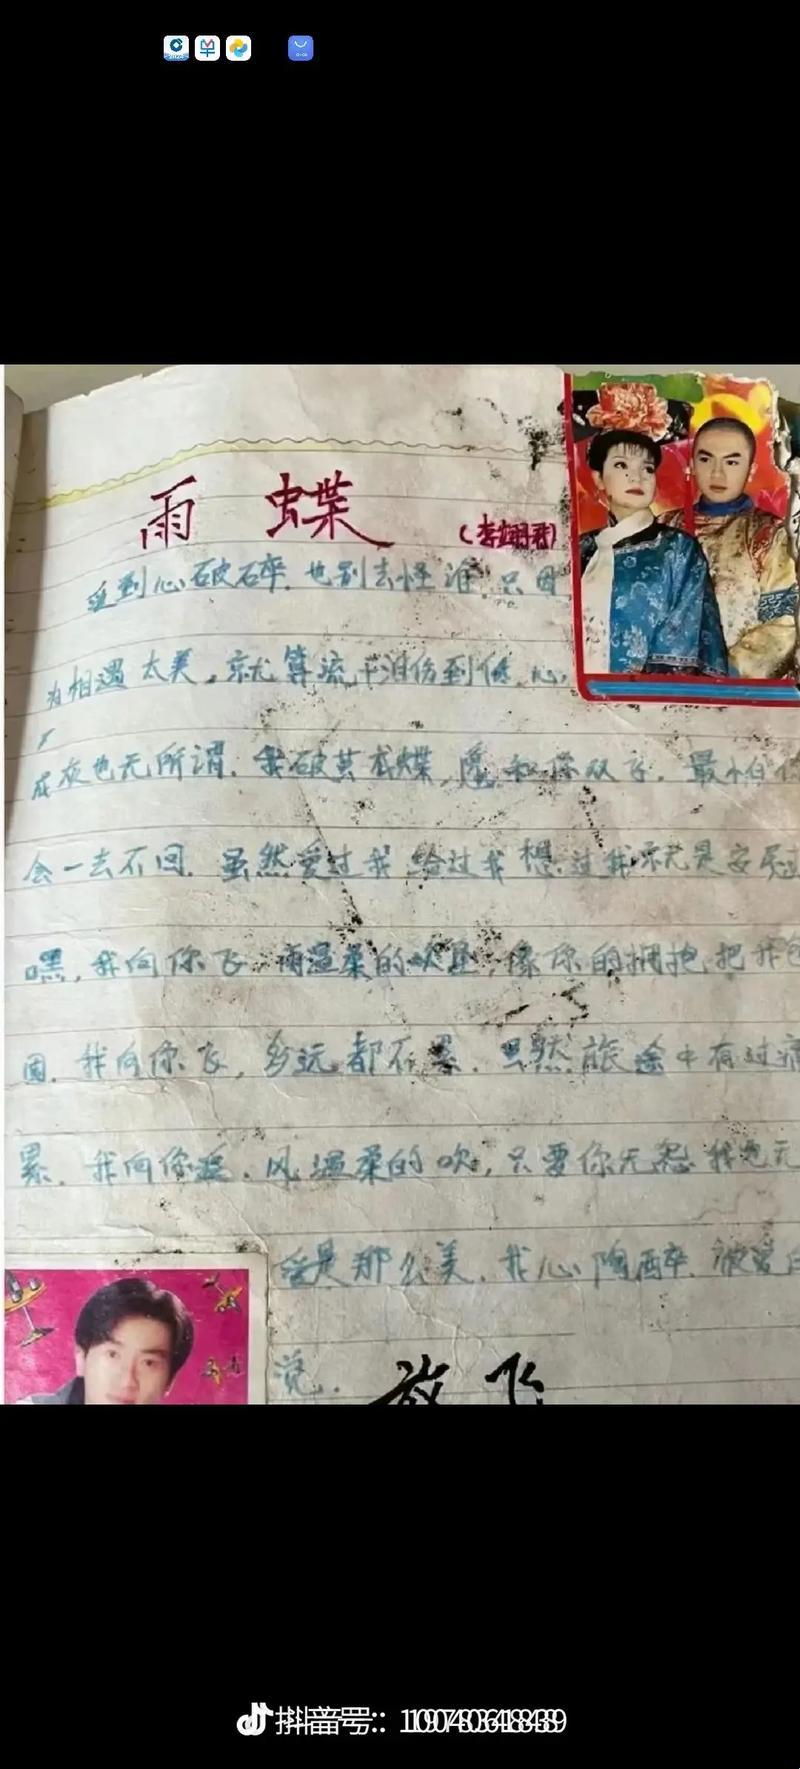 雨 蝶 (李翊君)
爱到心破碎.也别去怪谁.只因
为相遇太美.就算流干泪伤到底.心
成灰也无所谓.我破茧成蝶,愿和你双飞.最怕你
会一去不回.虽然爱过我给过我想过我就是安慰
嘿,我向你飞.雨温柔的吹坠,像你的拥抱把我包
围.我向你飞,多远都不累.虽然旅途中有过痛
累.我向你飞.风温柔的吹,只要你无怨我也无
爱是那么美.我心陶醉.被爱自
觉.
放飞
抖音号: